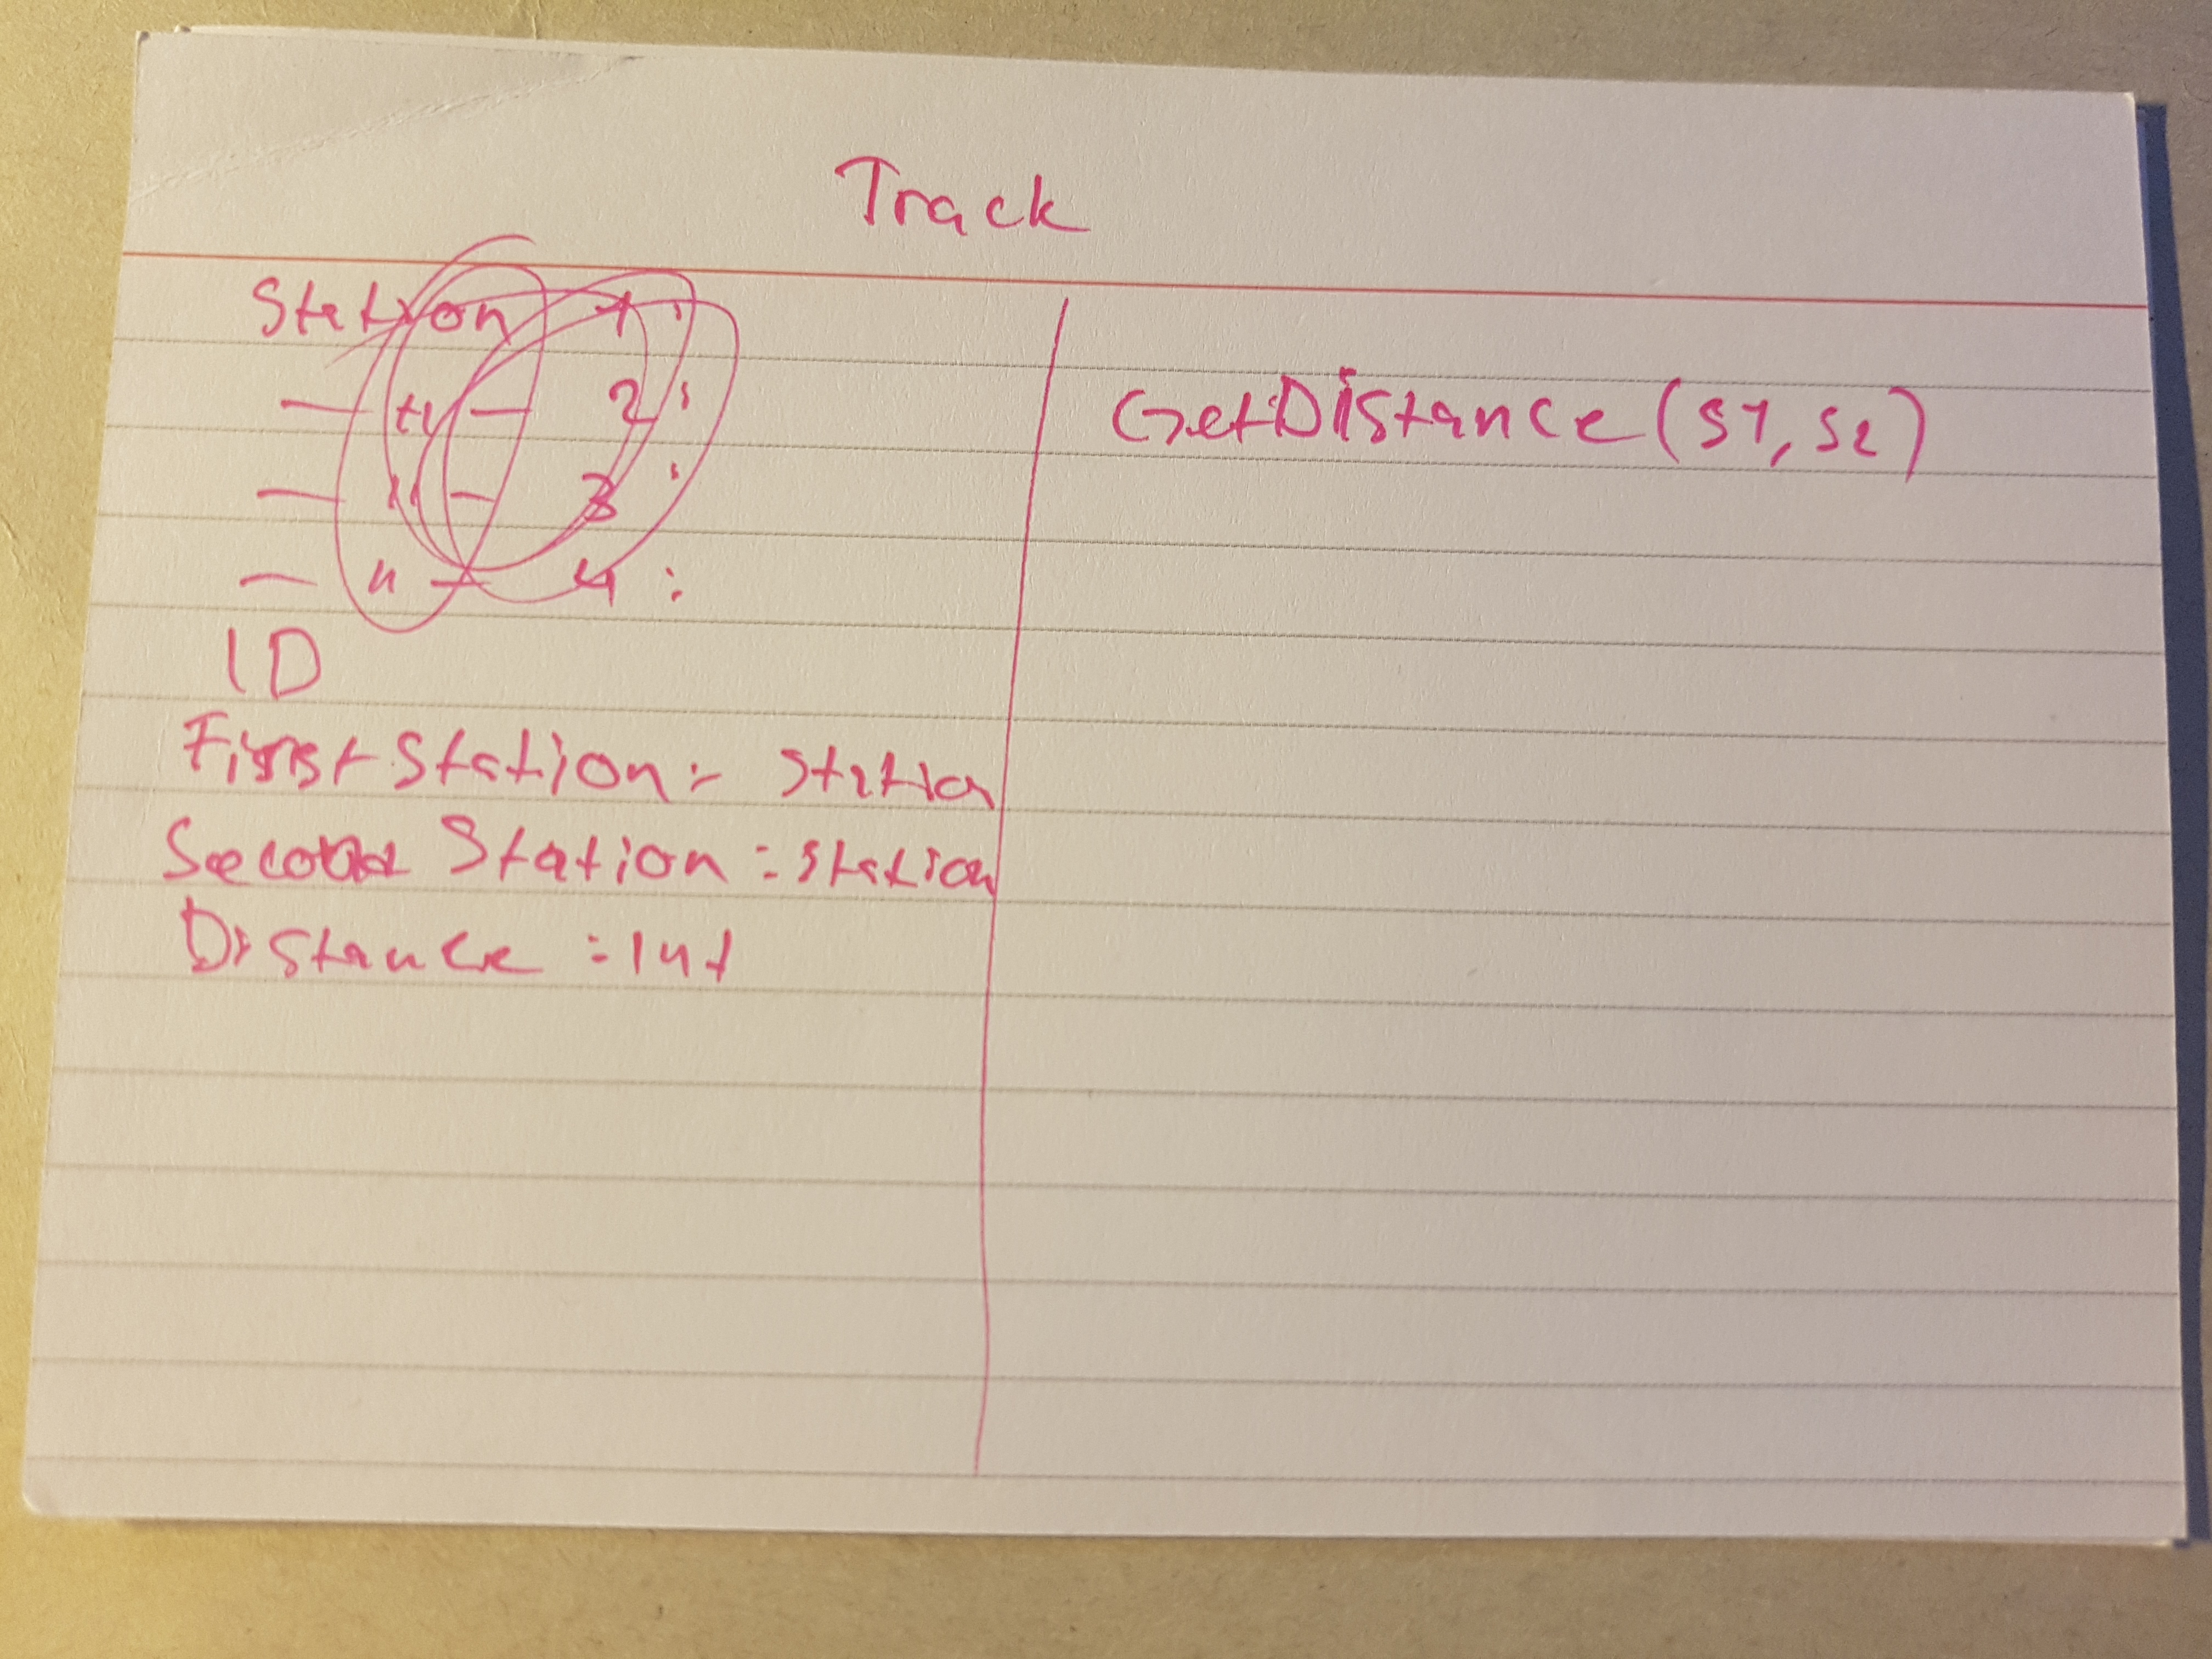 Track
Station 1:
— " — 2:
— " — 3:
— " — 4:
ID
First Station:- Station
Second Station:- Station
Distance:- Int
GetDistance(S1, S2)